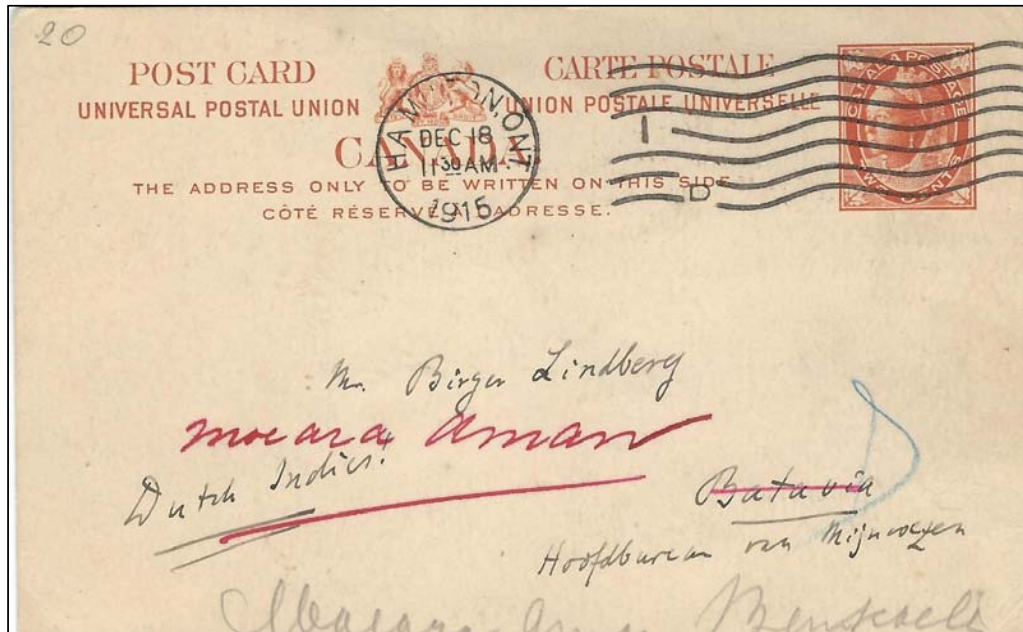 20
POST CARD CARTE POSTALE
UNIVERSAL POSTAL UNION UNION POSTALE UNIVERSELLE
CANADA
THE ADDRESS ONLY TO BE WRITTEN ON THIS SIDE
CÔTÉ RÉSERVÉ A L'ADRESSE.
HAMILTON, ONT.
DEC 18
11 30 AM
1915
1
D
CANADA POSTAGE
TWO CENTS
Mr. Birger Lindberg
Moeara Aman
Dutch Indies!
Batavia
Hoofdbureau van Mijnwezen
Moeara Aman Benkoelen